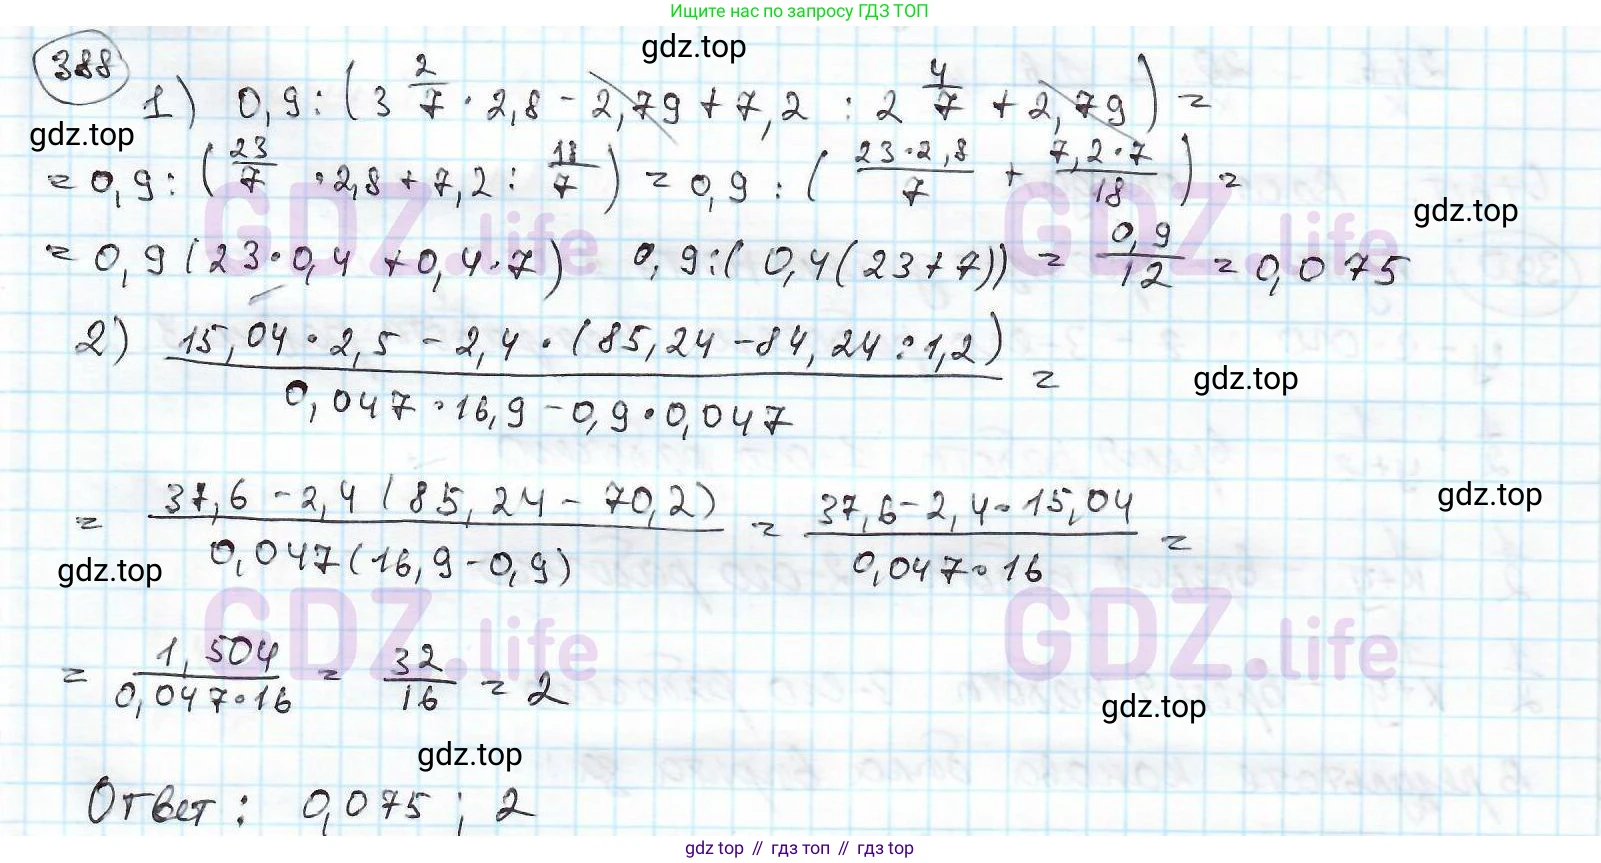 Ищите нас по запросу ГДЗ ТОП
388
gdz.top
1) 0,9 : (3 2/7 · 2,8 - 2,79 + 7,2 : 2 4/7 + 2,79) =
gdz.top
= 0,9 : (23/7 · 2,8 + 7,2 : 18/7) = 0,9 : (23·2,8/7 + 7,2·7/18) =
GDZ.life GDZ.life
gdz.top
= 0,9 (23·0,4 + 0,4·7) 0,9 : (0,4(23+7)) = 0,9/12 = 0,075
2) 15,04 · 2,5 - 2,4 · (85,24 - 84,24 : 1,2) / 0,047 · 16,9 - 0,9 · 0,047 =
gdz.top
= 37,6 - 2,4 (85,24 - 70,2) / 0,047 (16,9 - 0,9) = 37,6 - 2,4 · 15,04 / 0,047 · 16 =
gdz.top
gdz.top
GDZ.life GDZ.life
= 1,504 / 0,047 · 16 = 32/16 = 2
gdz.top
gdz.top
Ответ : 0,075 ; 2
gdz top // гдз топ // гдз top